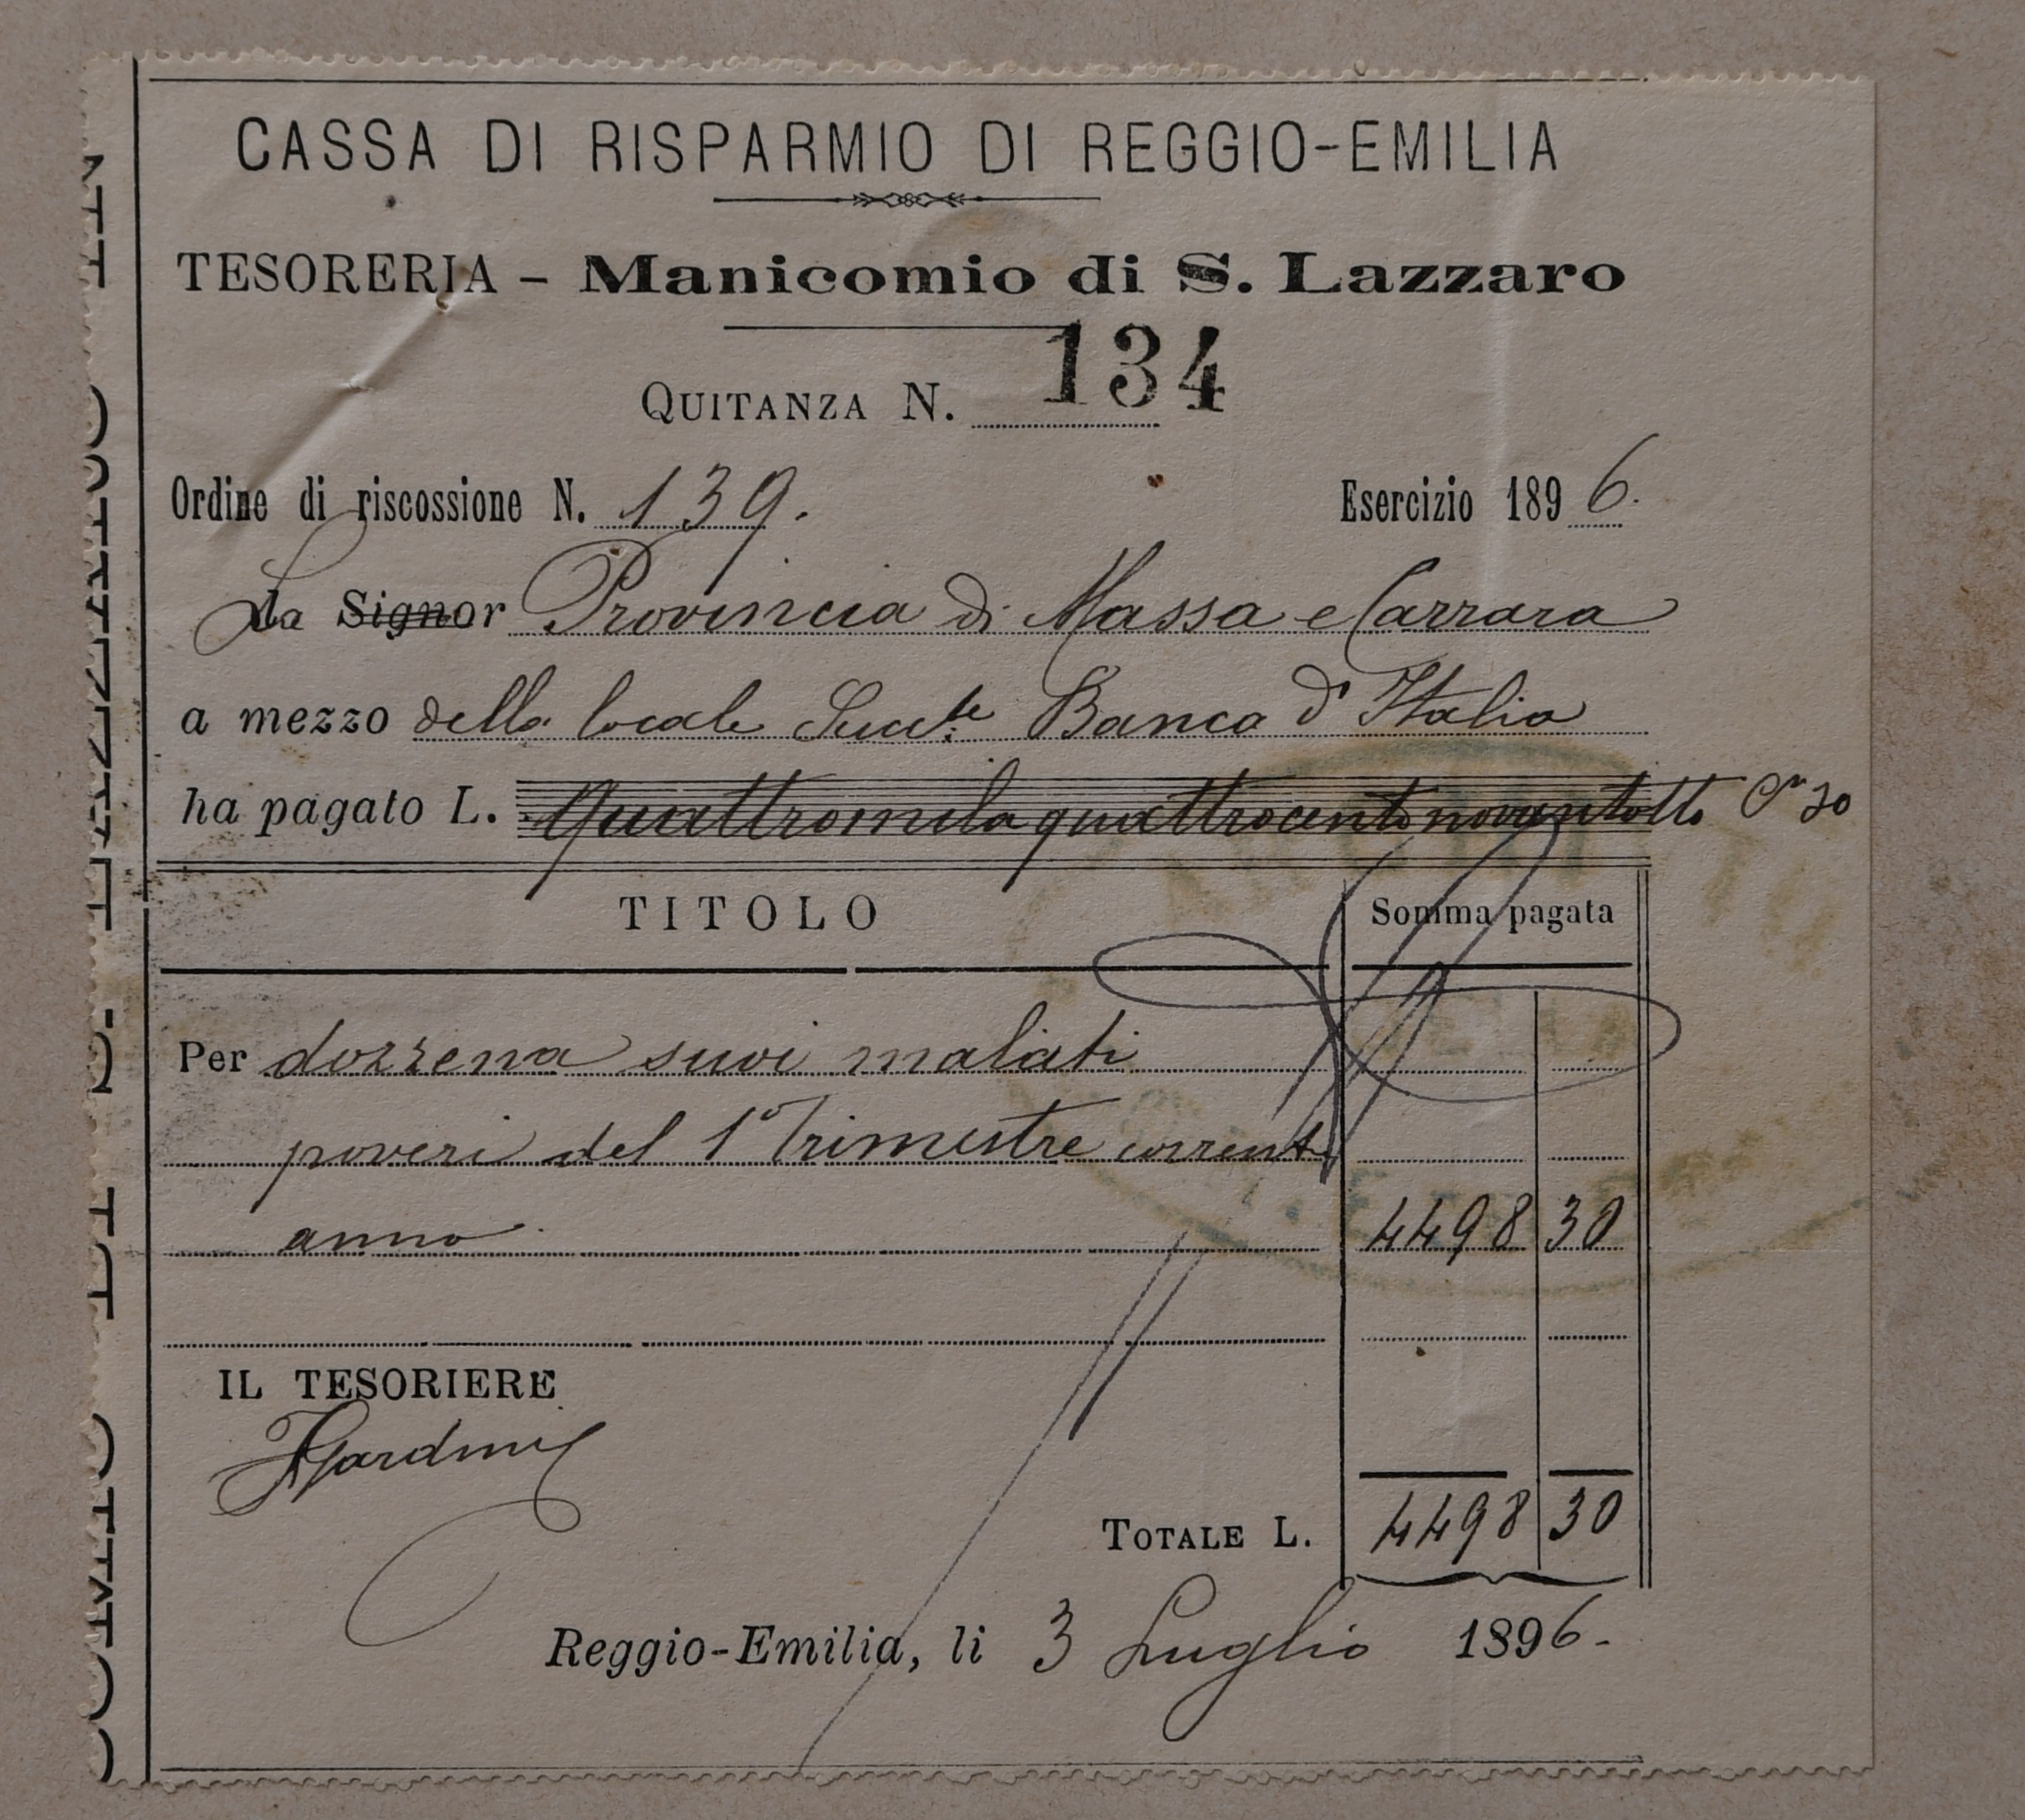 CASSA DI RISPARMIO DI REGGIO-EMILIA
TESORERIA - Manicomio di S. Lazzaro
QUITANZA N. 134
Ordine di riscossione N. 139. Esercizio 1896.
La Signor Provincia di Massa e Carrara
a mezzo della locale Succle Banca d'Italia
ha pagato L. Quattromila quattrocento novantotto Cmi 30
TITOLO Somma pagata
Per dozzena suoi malati
poveri del 1° Trimestre corrente
anno 4498 30
IL TESORIERE
TOTALE L. 4498 30
Reggio-Emilia, li 3 Luglio 1896.